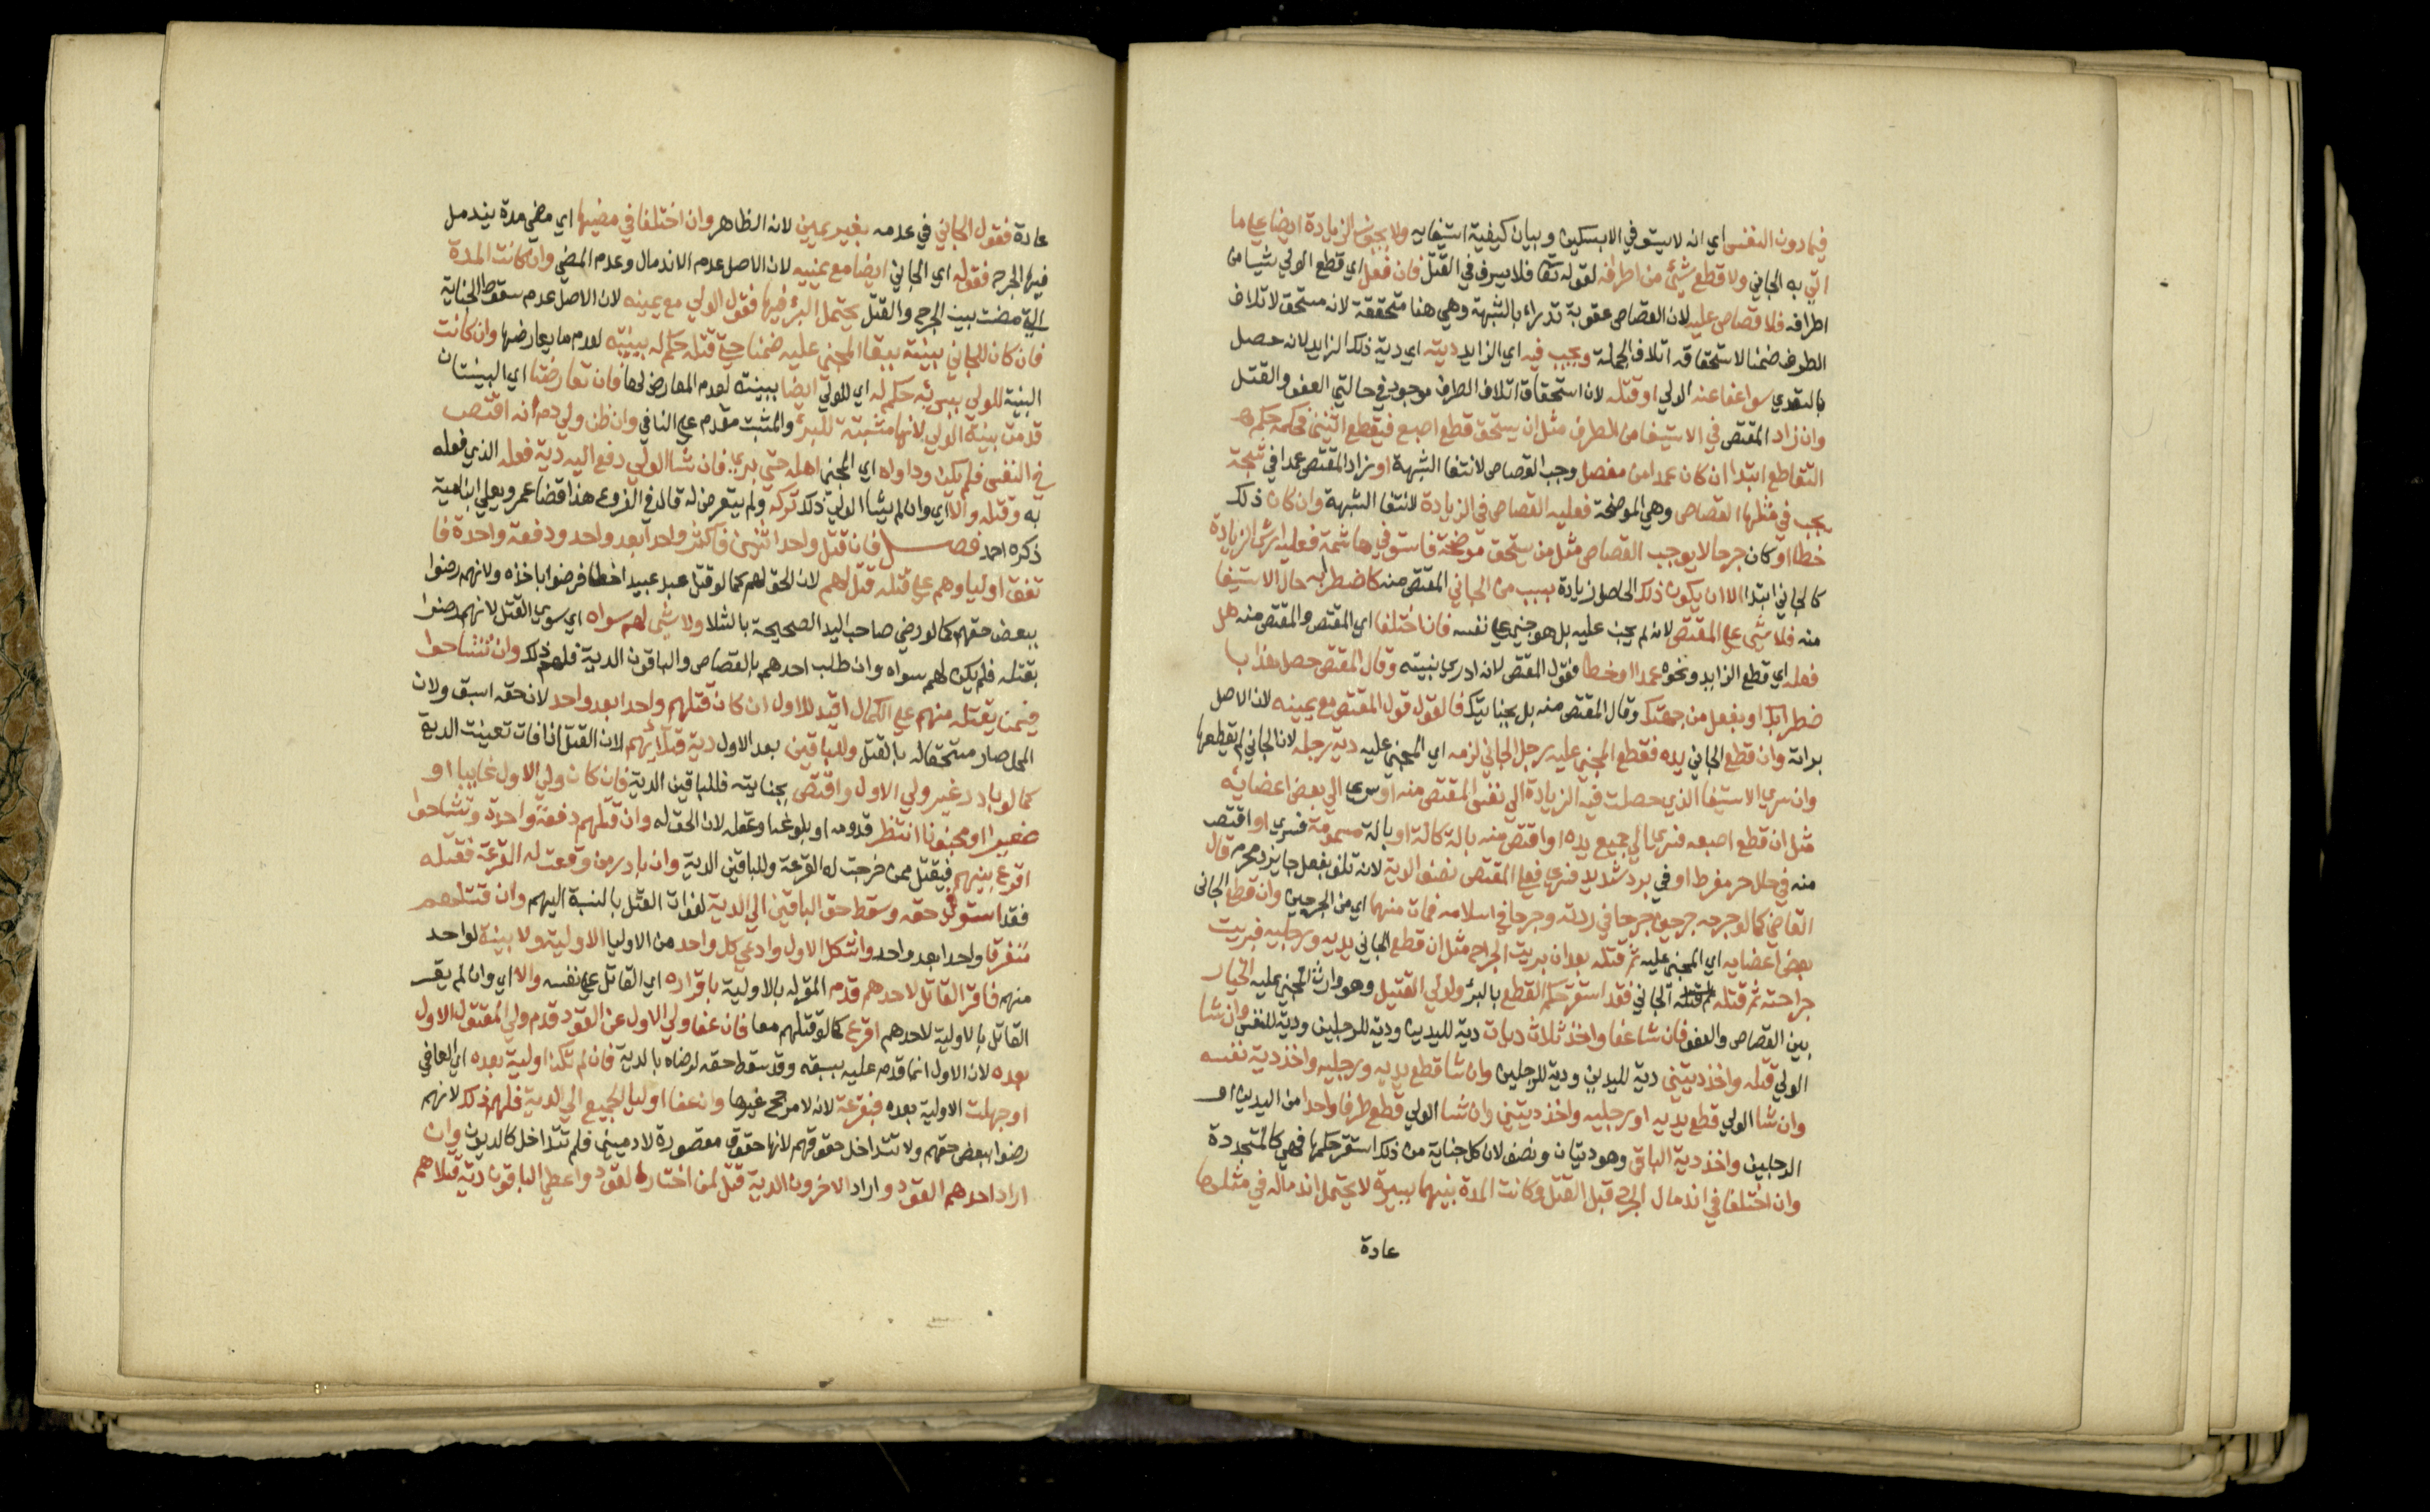 فيما دون النفس اي انه لا يستوفي الا بسكين وبيان كيفية استيفايه ولا يجوز الزيادة ايضا علي ما
اتي به الجاني ولا قطع شئ من اطرافه لقوله تعا فلا يسرف في القتل فان فعل اي قطع الولي شيا من
اطرافه فلا قصاص عليه لان القصاص عقوبة تدرا بالشبهة وهي هنا متحققة لانه مستحق لاتلاف
الطرف ضمنا لاستحقاقه اتلاف الجملة ويجب فيه اي الزايد ديته اي دية ذلك الزايد لانه حصل
بالتعدي سوا عفا عنه الولي او قتله لان استحقاق اتلاف الطرف موجود في حالتي العفو والقتل
وان زاد المقتص في الاستيفا من الطرف مثل ان يستحق قطع اصبع فيقطع اثنين فحكمه حكم
القاطع ابتدا ان كان عمدا من مفصل وجب القصاص لانتفا الشبهة او زاد المقتص عمدا في شجة
يجب في مثلها القصاص وهي الموضحة فعليه القصاص في الزيادة لانتفا الشبهة وان كان ذلك
خطا او كان جرحا لا يوجب القصاص مثل من يستحق موضحة فاستوفي هاشمة فعليه ارش الزيادة
كالجاني ابتدا الا ان يكون ذلك الحاصل زيادة بسبب من الجاني المقتص منه كاضطرابه حال الاستيفا
منه فلا شي علي المقتص لانه لم يجن عليه بل هو جني علي نفسه فان اختلفا اي المقتص والمقتص منه هل
فعله اي قطع الزايد ونحوه عمدا او خطا فقول المقتص لانه ادري بنيته وقال المقتص حصل هذا با
ضطرابك او بفعل من جهتك وقال المقتص منه بل بجنايتك فالقول قول المقتص مع يمينه لان الاصل
براته وان قطع الجاني يده فقطع المجني عليه رجل الجاني لزمه اي المجني عليه دية رجله لان الجاني لم يقطعها
وان سري الاستيفا الذي حصلت فيه الزيادة الي نفس المقتص منه او سري الي بعض اعضايه
مثل ان قطع اصبعه فسري الي جميع يده او اقتص منه بالة كالة او بالة مسمومة فسري او اقتص
منه في حال حر مفرط او في برد شديد فسري فعلي المقتص نصف الدية لانه تلف بفعل جايز ومحرم قال
القاضي كما لو جرحه جرحين جرحا في ردته وجرحا في اسلامه فمات منهما اي من الجرحين وان قطع الجاني
بعض اعضايه اي المجني عليه ثم قتله بعد ان بريت الجراح مثل ان قطع الجاني يديه ورجليه فبريت
جراحته ثم قتله الجاني فقد استقر حكم القطع بالبرء ولولي القتيل وهو وارث المجني عليه الخيار
بين القصاص والعفو فان شا عفا واخذ ثلاث ديات دية لليدين ودية للرجلين ودية للنفس وان شا
الولي قتله واخذ ديتين دية لليدين ودية للرجلين وان شا قطع يديه ورجليه واخذ دية نفسه
وان شا الولي قطع يديه او رجليه واخذ ديتين وان شا الولي قطع طرفا واحدا من اليدين او
الرجلين واخذ دية الباقي وهو ديتان ونصف لان كل جناية من ذلك استقر حكمها فهي كالمتجددة
وان اختلفا في اندمال الجرح قبل القتل وكانت المدة بينهما يسيرة لا يحتمل اندماله في مثلها
عادة
عادة فقول الجاني في عدمه بغير يمين لانه الظاهر وان اختلفا في مضيها اي مضي مدة يندمل
فيها الجرح فقوله اي الجاني ايضا مع يمينه لان الاصل عدم الاندمال وعدم المضي وان كانت المدة
التي مضت بين الجرح والقتل يحتمل البرء فيها فقول الولي مع يمينه لان الاصل عدم سقوط الجناية
فان كان للجاني بينة ببقا المجني عليه ضمنا حتي قتله حكم له ببينته لعدم ما يعارضها وان كانت
البينة للولي ببرئه حكم له اي للولي ايضا ببينته لعدم المعارض لها فان تعارضتا اي البينتان
قدمت بينة الولي لانها مثبتة للبرء والمثبت مقدم علي النافي وان ظن ولي دم انه اقتص
في النفس فلم يكن وداواه اي المجني اهله حتي بري فان شا الولي دفع اليه دية فعله الذي فعله
به وقتله والا اي وان لم يشا الولي ذلك تركه ولم يتعرض له قال في الفروع هذا قضا عمر وعلي ويعلي ابن امية
ذكره احمد فصل فان قتل واحد اثنين فاكثر واحدا بعد واحد ودفعة واحدة فا
تفق اولياوهم علي قتله قتل لهم لان الحق لهم كما لو قتل عبد عبيدا خطا فرضوا باخذه ولانهم رضوا
ببعض حقهم كما لو رضي صاحب اليد الصحيحة بالشلا ولا شي لهم سواه اي سوي القتل لانهم رضوا
بقتله فلم يكن لهم سواه وان طلب احدهم بالقصاص والباقون الدية فلهم ذلك وان تشاحوا
فيمن يقتله منهم علي الكمال اقيد للاول ان كان قتلهم واحدا بعد واحد لان حقه اسبق ولان
المحل صار مستحقا له بالقتل وللباقين بعد الاول دية قتلائهم لان القتل اذا فات تعينت الدية
كما لو بادر غير ولي الاول واقتص بجنايته فللباقين الدية فان كان ولي الاول غايبا او
صغيرا او مجنونا انتظر قدومه او بلوغه او عقله لان الحق له وان قتلهم دفعة واحدة وتشاحوا
اقرع بينهم فيقتل ممن خرجت له القرعة وللباقين الدية وان بادر من وقعت له القرعة فقتله
فقد استوفي حقه وسقط حق الباقين الي الدية لفوات القتل بالنسبة اليهم وان قتلهم
متفرقا واحدا بعد واحد واشكل الاول وادعي كل واحد من الاوليا الاولية ولا بينة لواحد
منهم فاقر القاتل لاحدهم قدم المقر له بالاولية باقراره اي القاتل علي نفسه والا اي وان لم يقر
القاتل بالاولية لاحدهم اقرع كما لو قتلهم معا فان عفا ولي الاول عن القود قدم ولي المقتول الاول
بعده لان الاول انما قدم عليه بسبقه وقد سقط حقه لرضاه بالدية فان لم تكن اولية بعده اي العافي
او جهلت الاولية بعده فبقرعة لانه لا مرجح غيرها وان عفا اوليا الجميع الي الدية فلهم ذلك لانهم
رضوا ببعض حقهم ولا تتداخل حقوقهم لانها حقوق مقصورة لادميين فلم تتداخل كالديون وان
اراد احدهم القود واراد الاخرون الدية قتل لمن اختار القود واعطي الباقون دية قتلاهم